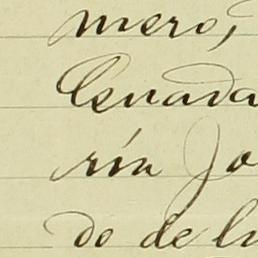 mero,
Censada
ría Jo
do de lu